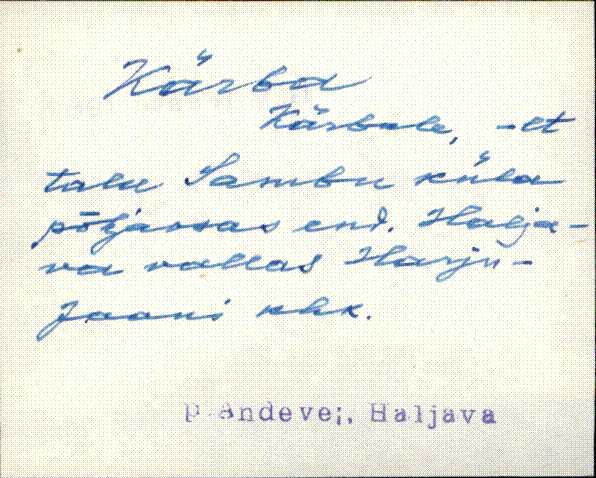 Kärba
Kärbale, -lt
talu Sambu küla
põhjaosas end. Halja-
va vallas Harju-
Jaani khk.
P. Andevei, Haljava